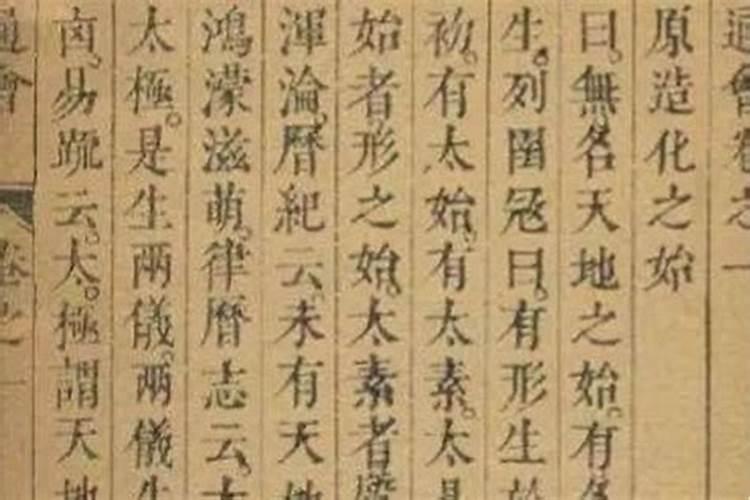 通會卷之一
原造化之始
曰。無名天地之始。有名
生。列圄寇曰。有形生於
初。有太始。有太素。太易
始者形之始。太素者
渾淪。曆紀云。未有天地
鴻濛滋萌。律曆志云。太
太極。是生兩儀。兩儀生
卤。易䟽云。太。極謂天地
通會
卷之一